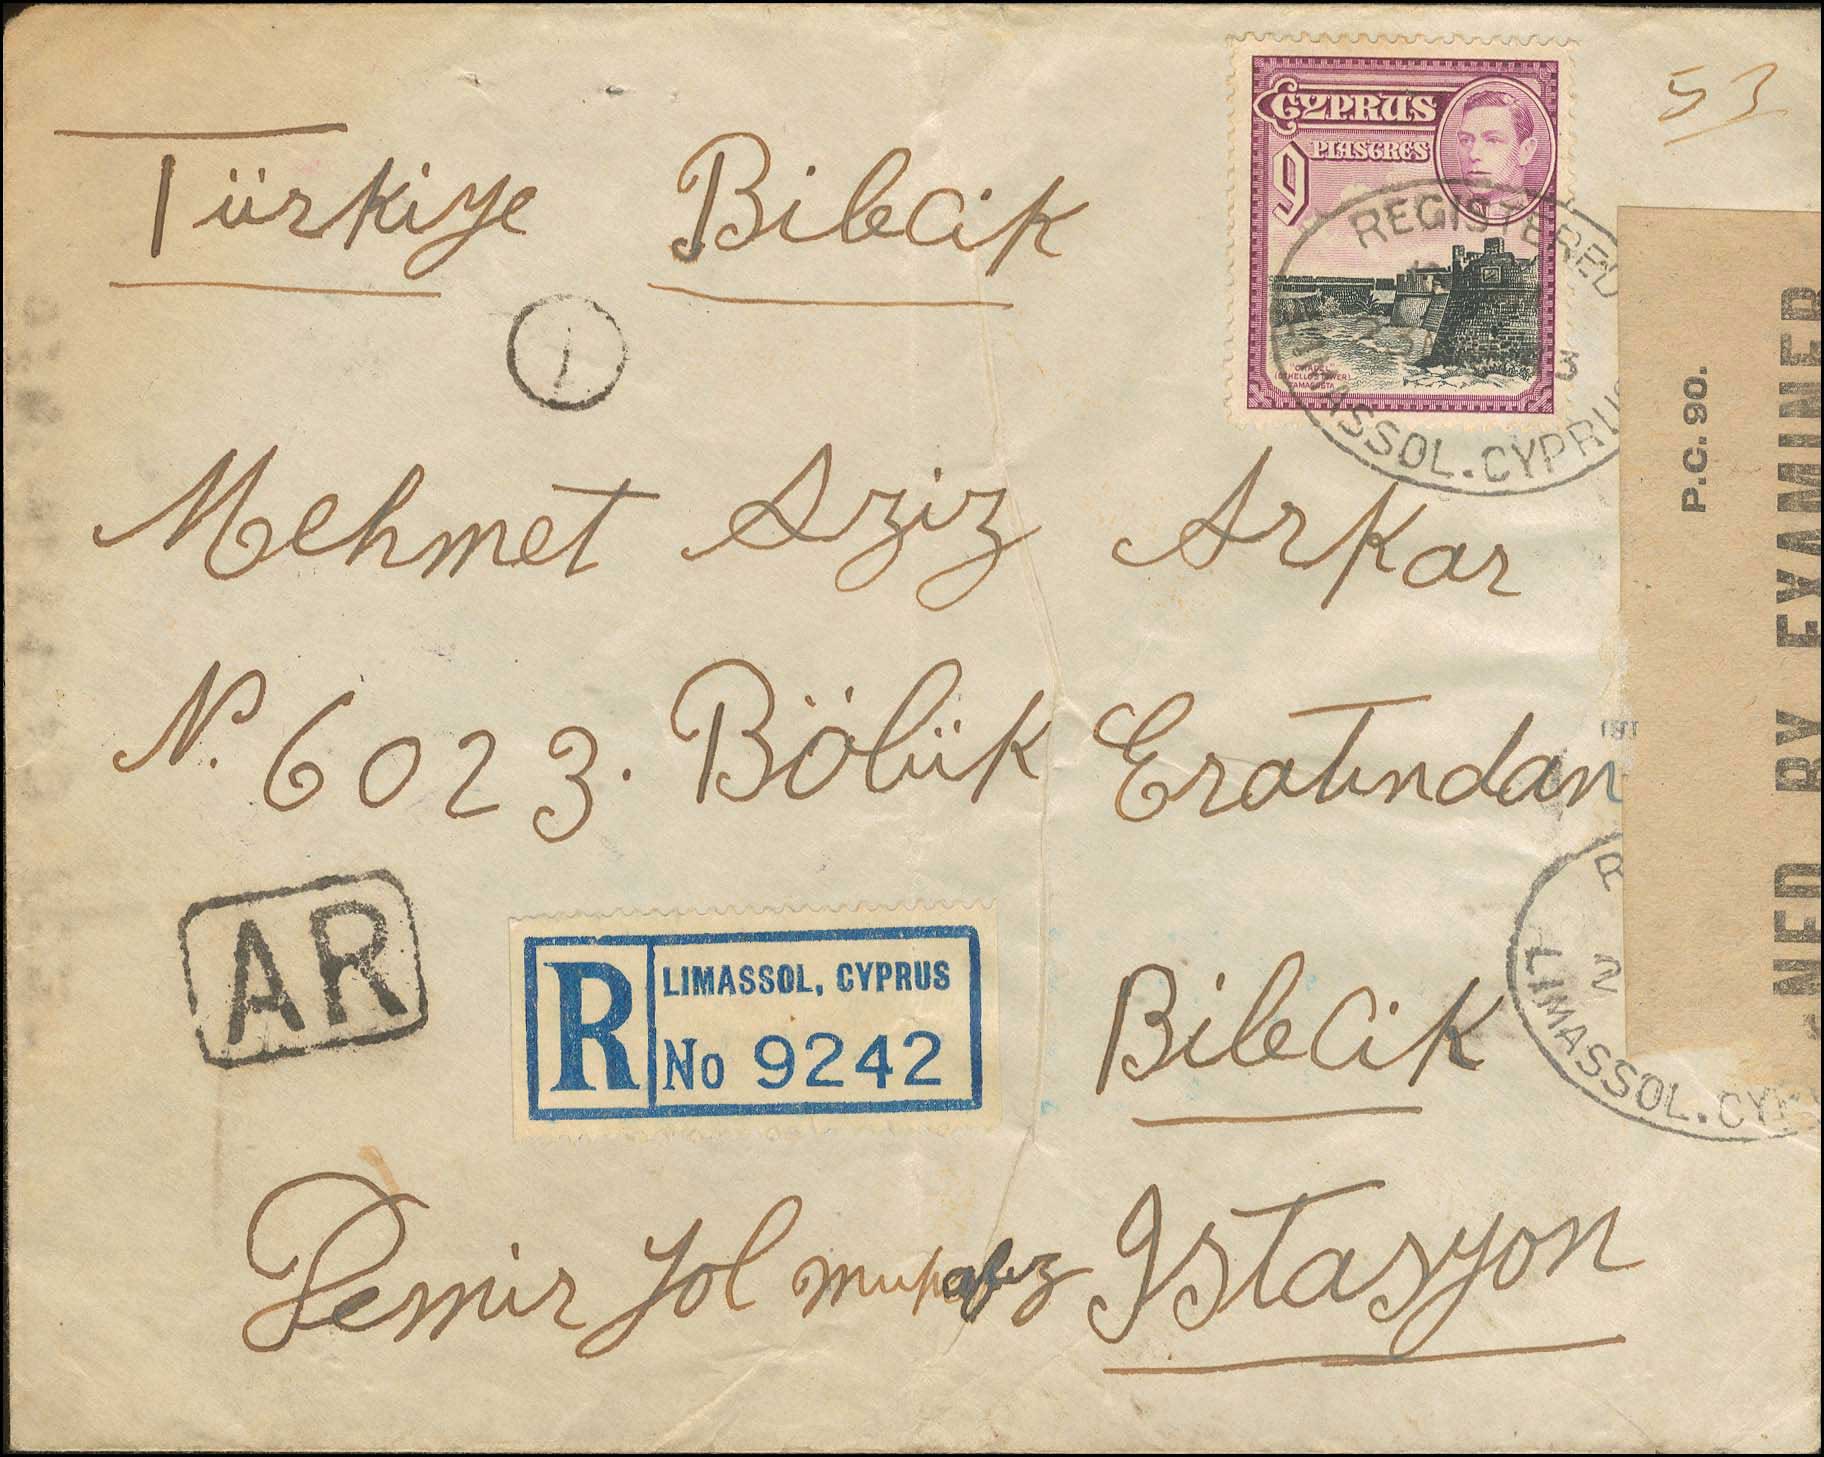 53
CYPRUS
PIASTRES
9
CITADEL
(OTHELLO'S TOWER)
FAMAGUSTA
REGISTERED
LIMASSOL. CYPRUS
3
Türkiye Bilecik
1
P.C. 90.
NED BY EXAMINER
Mehmet Aziz Arkar
No. 6023. Bölük Eratından
AR
R
LIMASSOL, CYPRUS
No 9242
Bilecik
R
LIMASSOL. CYP
Demir Yol muhafız Istasyon